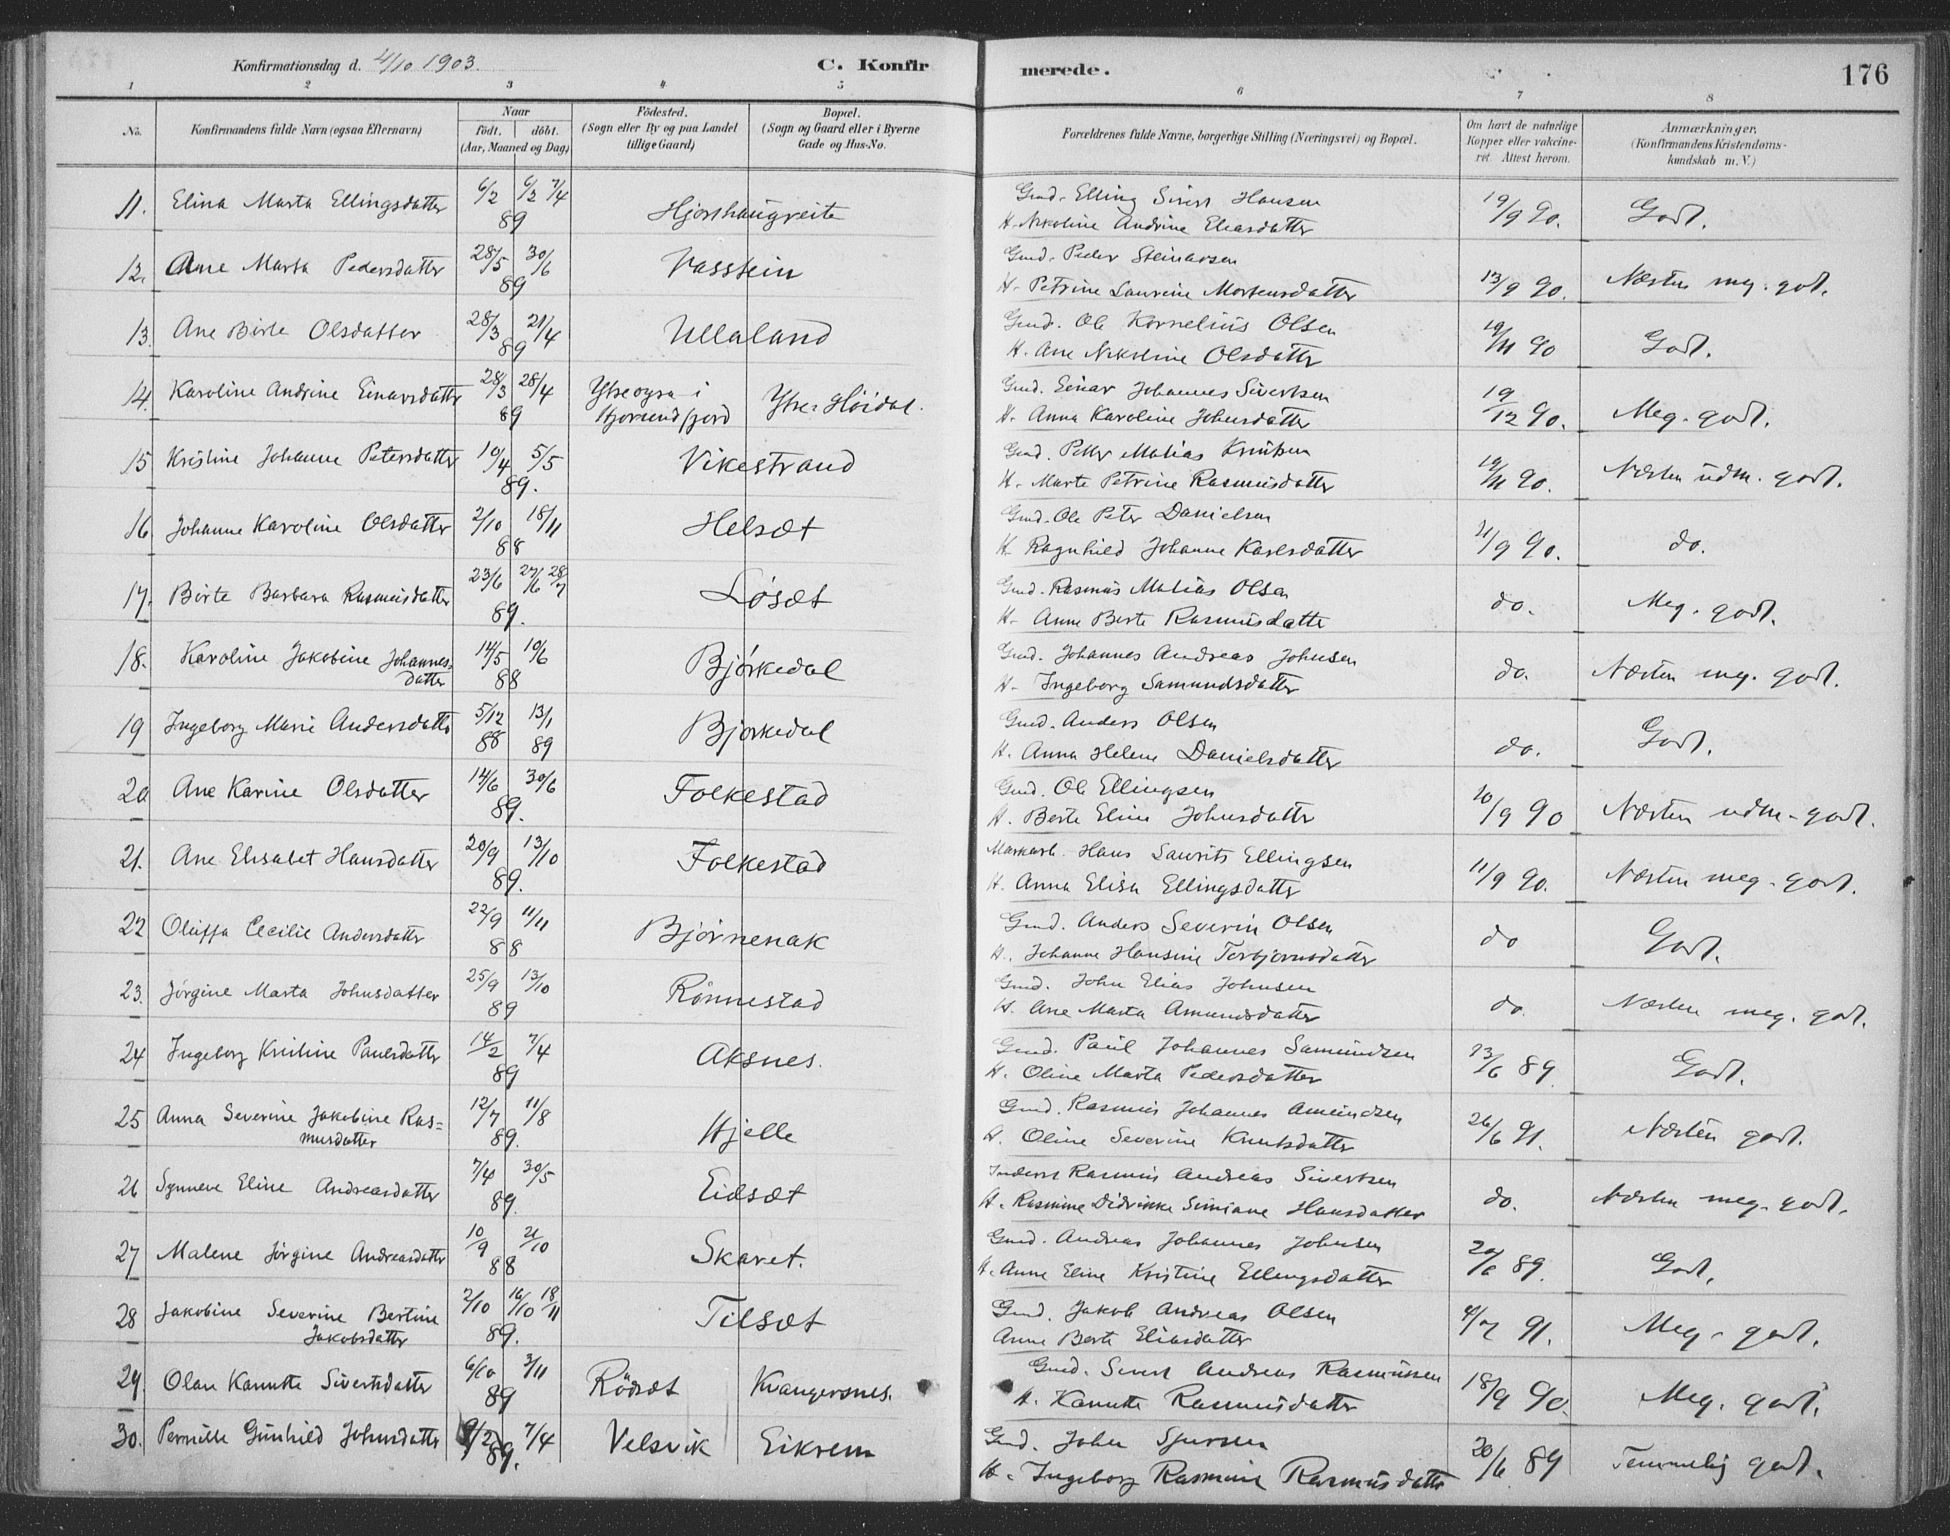 Konfirmationsdag d. 4/10 1903. C. Konfirmerede. 176
1 2 3 4 5 6 7 8
No. Konfirmandens fulde Navn (ogsaa Efternavn) Naar født. døbt. (Aar, Maaned og Dag) Fødested. (Sogn eller By og paa Landet tillige Gaard) Bopæl. (Sogn og Gaard eller i Byerne Gade og Hus-No. Forældrenes fulde Navne, borgerlige Stilling (Næringsvei) og Bopæl. Om havt de naturlige Kopper eller vakcineret. Attest herom. Anmærkninger, (Konfirmandens Kristendomskundskab m. V.)
11. Elina Marta Ellingsdatter 6/2 6/2 7/4 89 Hjorthaugreite Gmd. Elling Sivert Hansen
H. Nikoline Andrine Eliasdatter 19/9 90. Godt.
12. Ane Marta Pedersdatter 28/5 30/6 89 Vasstein Gmd. Peder Steinarsen
H. Petrine Laurine Mortensdatter 13/9 90. Næsten meg. godt.
13. Ane Birte Olsdatter 28/3 21/4 89 Ullaland Gmd. Ole Kornelius Olsen
H. Ane Nikoline Olsdatter 19/11 90 Godt.
14. Karoline Andrine Einarsdatter 28/3 28/4 89 Ytre ogsa i Hjorundfjord Ytre Höidal. Gmd. Einar Johannes Sivertsen
H. Anna Karoline Johnsdatter 19/12 90. Meg. godt.
15 Kristine Johanne Petersdatter 10/4 5/5 89. Vikestrand Gmd. Petter Matias Knutsen
H. Marte Petrine Rasmusdatter 19/11 90. Næsten udm. godt.
16 Johanne Karoline Olsdatter 2/10 18/11 88 Helsæt Gmd. Ole Peter Danielsen
H. Ragnhild Johanne Karlsdatter 11/9 90. do.
17. Birte Barbara Rasmusdatter 23/6 27/6 28/7 89. Løsæt Gmd. Rasmus Matias Olsen
H. Anne Berte Rasmusdatter do. Meg. godt.
18. Karoline Jakobine Johannesdatter 14/5 10/6 88 Bjørkedal Gmd. Johannes Andreas Johnsen
H. Ingeborg Samundsdatter do. Næsten meg. godt.
19 Ingeborg Marie Andersdatter 5/12 88 13/1 89 Bjørkedal Gmd. Anders Olsen
H. Anna Helene Danielsdatter do. Godt.
20 Ane Karine Olsdatter 14/6 30/6 89. Folkestad Gmd. Ole Ellingsen
H. Berte Eline Johnsdatter 10/9 90 Næsten udm. godt.
21. Ane Elisabet Hansdatter 20/9 13/10 89. Folkestad Markarb. Hans Laurits Ellingsen
H. Anna Elisa Ellingsdatter 11/9 90. Næsten meg. godt.
22 Oluffa Cecilie Andersdatter 22/9 11/11 88 Bjørnenak Gmd. Anders Severin Olsen
H. Johanne Hansine Torbjørnsdatter do Godt.
23. Jørgine Marta Johnsdatter 25/9 13/10 89 Rönnestad Gmd. John Elias Johnsen
H. Ane Marta Amundsdatter do. Næsten meg. godt.
24 Ingeborg Kristine Paulsdatter 14/2 7/4 89 Aksnes. Gmd. Paul Johannes Samundsen
H. Oline Marta Pedersdatter 13/6 89 Godt.
25 Anna Severine Jakobine Rasmusdatter 12/7 11/8 89. Hjelle Gmd. Rasmus Johannes Amundsen
H. Oline Severine Knutsdatter 26/6 91. Næsten godt.
26 Synneve Eline Andreasdatter 7/4 30/5 89. Eidsæt Inderst Rasmus Andreas Sivertsen
H. Rasmine Didrikke Simiane Hansdatter do. Næsten meg. godt.
27 Malene Jørgine Andreasdatter 10/9 21/10 88 Skaret. Gmd. Andreas Johannes Johnsen
H. Anne Eline Kristine Ellingsdatter 20/6 89. Godt.
28 Jakobine Severine Bertine Jakobsdatter 2/10 16/10 18/11 89. Tilsæt Gmd. Jakob Andreas Olsen
Anne Berte Eliasdatter 4/7 91. Meg. godt.
29. Olave Kanutte Sivertsdatter 6/10 3/11 89 Rödsæt Kvangersnes. Gmd. Sivert Andreas Rasmussen
H. Kanutte Rasmusdatter 18/9 90. Meg. godt.
30. Pernille Gunhild Johnsdatter 9/2 7/4 89. Velsvik Eikrem Gmd. John Sjursen
H. Ingeborg Rasmine Rasmusdatter 20/6 89 Temmelig godt.